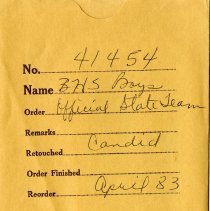 No. 41454
Name BHS Boys
Order Official State Team
Remarks
Retouched Candid
Order Finished
Reorder April 83